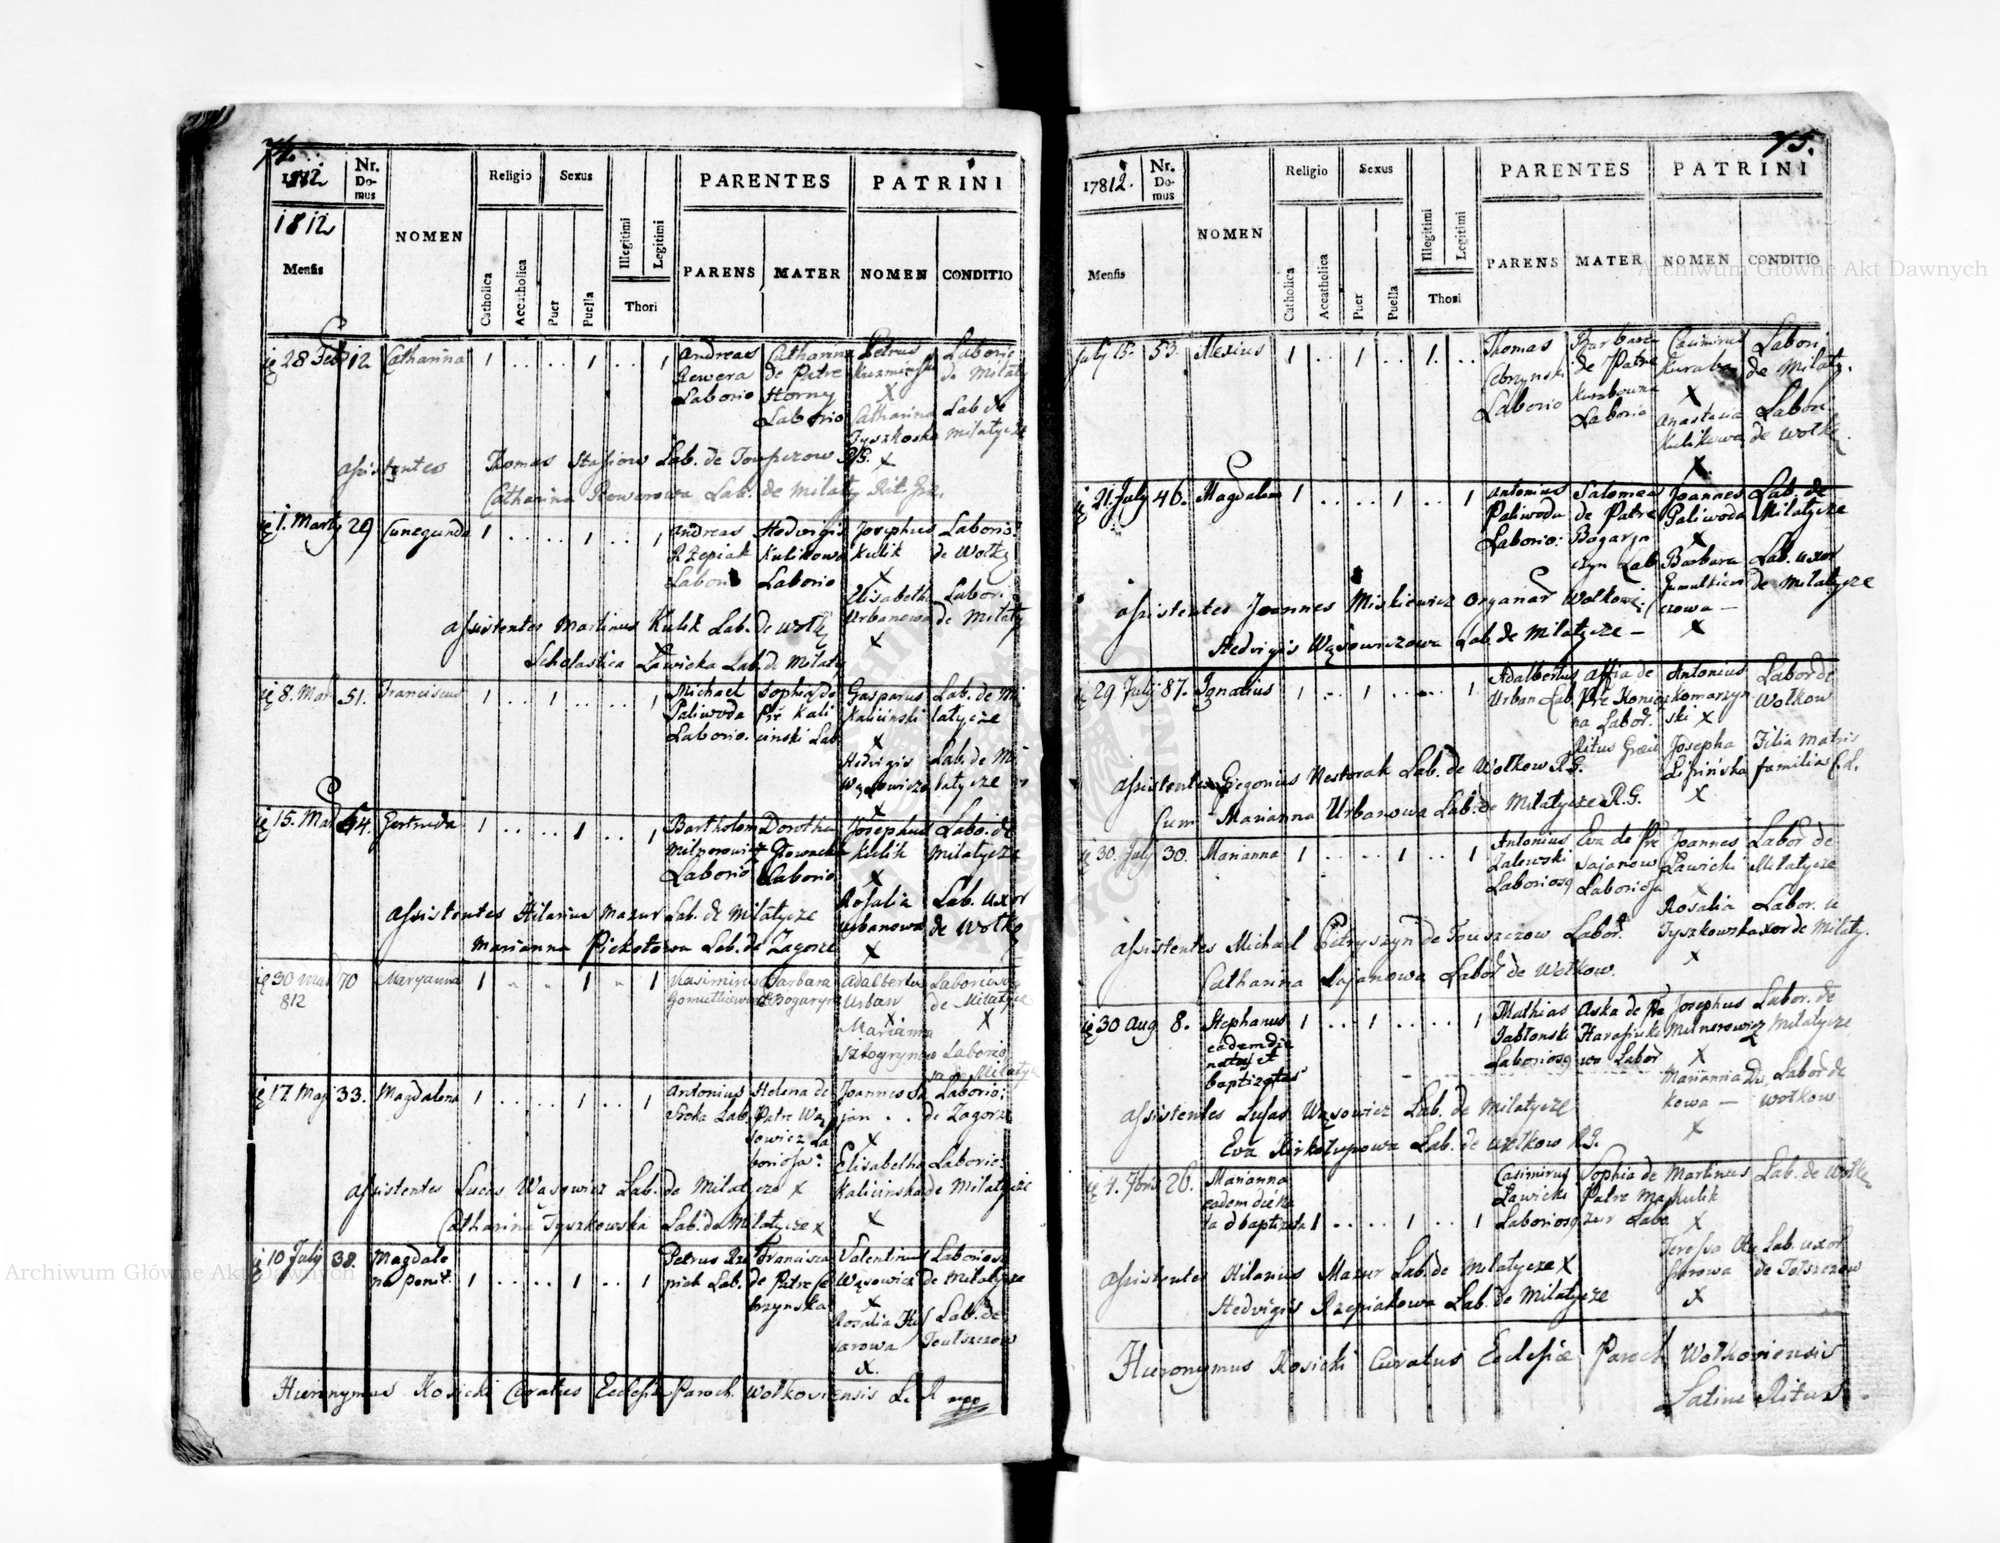 74.
1812
Nr. Do-mus
NOMEN
Religio
Sexus
PARENTES
PATRINI
1812
Mensis
Catholica
Accatholica
Puer
Puella
Illegitimi
Legitimi
Thori
PARENS
MATER
NOMEN
CONDITIO
28 Feb 12 Catharina 1 .. .. 1 .. 1
Andreas
Rewera
Laborio
Catharina
de Patre
Horny
Laborio
Petrus
X
Catharina
Tyszkoska
X
Laborio
de Milaty
Lab de
Milatycze
assistentes Thomas Stasiow Lab. de RG.
Catharina Rewerowa Lab. de Milaty Rit. Gr.
1. Marty 29 Cunegunda 1 .. .. 1 .. 1
Andreas
Rzepiak
Labori
Hedvigis
Kulikowa
Laborio
Josephus
Kulik
X
Elisabetha
Urbanowa
X
Laborio:
de Wołk
Labor.
de Milaty
assistentes Martinus Kulik Lab. de Wołk
Scholastica Ławicka Lab. de Milaty
8. Mar 51. Franciscus 1 .. 1 .. .. 1
Michael
Paliwoda
Laborio.
Sophia de
Pre Kali
cinski Lab
Gasparus
Kalicinski
X
Hedvigis
Wąsowicz
X
Lab. de Mi
latycze
Lab. de Mi
latycze
15. Mar 64. Gertruda 1 .. .. 1 .. 1
Bartholom
Milnerowicz
Laborio
Dorothea
Głowacka
Laborio
Josephus
Kulik
X
Rosalia
Urbanowa
X
Labo. de
Milatycze
Lab. uxor
de Wołko
assistentes Hilarius Mazur Lab. de Milatycze
Marianna Piekołowa Lab. de Zagorze
30 Mar 70 Maryanna 1 " " 1 " 1
812
Kasimirus
Barbara
Adalbertus
Urban
X
Marianna
Laboriosq
de Milatycze
X
Laborio
Milatycz
17 Maj 33. Magdalena 1 .. .. 1 .. 1
Antonius
Lab.
Helena de
Patre Wą
sowicz La
boriosa
Joannes Sa
jan . .
X
Elisabetha
Kalicinska
X
Laborio:
de Zagorze
Laborio:
de Milatycze
assistentes Lucas Wąsowicz Lab. de Milatycze X
Catharina Tyszkowska Lab. de Milatycze X
10 July 38. Magdale
na penit. 1 .. .. 1 .. 1
Petrus Rze
piak Lab.
Francisca
de Patre Ce
brzynska
Valentinus
Wąsowicz
X
Rosalia
X
Laborios
de Milatycze
Lab. de
Toułszczow
Hieronymus Kosicki Curatus Ecclesiæ Paroch. Wołkoviensis L. R mpp
75.
17812.
Nr. Do-mus
NOMEN
Religio
Sexus
PARENTES
PATRINI
Mensis
Catholica
Accatholica
Puer
Puella
Illegitimi
Legitimi
Thori
PARENS
MATER
NOMEN
CONDITIO
July 15. 53. Alexius 1 .. 1 .. 1. ..
Thomas
Cebrzynski
Laborio
Barbara
de Patre
Kurabowna
Laboria
Casimirus
Kuraba
X
Anastasia
Kulikowa
X
Labori
de Milaty.
Labori
de Wołko
21. July 46. Magdalena 1 .. .. 1 .. 1
Antonius
Paliwoda
Laborio:
Salomea
de Patre
Bogaryn
Lab
Joannes
Paliwoda
X
Barbara
Gumulkiewi
czowa —
X
Lab. de
Milatycze
Lab. uxor
de Milatycze
assistentes Joannes Miskiewicz Organar Wołkowi
Hedvigis Wąsowiczowa Lab. de Milatycze —
29 July 87. Ignatius 1 .. 1 .. .. 1
Adalbertus
Urban Lab.
Affia de
Pre Koniecz
na Labor.
Ritus Græci
Antonius
Komarzyn
ski X
Josepha
Lipińska
X
Labor de
Wołkow
Filia Matris
familia C.L.
assistentes Gregorius Nestorak Lab. de Wołkow R.G.
Cum Marianna Urbanowa Lab. de Milatycze R.G.
30. July 30. Marianna 1 .. .. 1 .. 1
Antonius
Zalewski
Laboriosq
Eva de Pre
Sajanow
Laboriosa
Joannes
Ławicki
X
Rosalia
Tyszkowska
X
Labor de
Milatycze
Labor. u
xor de Milaty.
assistentes Michael Petryszyn de Touszczow Labor.
Catharina Sajanowa Labor de Wołkow.
30 Aug 8. Stephanus 1 .. 1 .. .. 1
eadem die
natus et
baptizatus
Mathias
Jabłonski
Laboriosq
Aska de Pre
Harasiuki
wo Labor
Josephus
Milnerowicz
X
Marianna Du
kowa —
X
Labor. de
Milatycze
Labor de
Wołkow
assistentes Lucas Wąsowicz Lab. de Milatycze
Eva Lab. de Wołkow R.G.
4. 7bris 26. Marianna
eadem die na
ta & baptizata 1 .. .. 1 .. 1
Casimirus
Ławicki
Laboriosq
Sophia de
Patre Ma
zur Labo
Martinus
Kulik
X
Teressa
X
Lab. de Wołko
Lab. uxor
de Tołszczow
assistentes Hilarius Mazur Lab. de Milatycze X
Hedvigis Rzepiakowa Lab. de Milatycze
Hieronymus Kosicki Curatus Ecclesiæ Paroch Wołkoviensis
Latini Ritus.
Archiwum Główne Akt Dawnych
Archiwum Główne Akt Dawnych